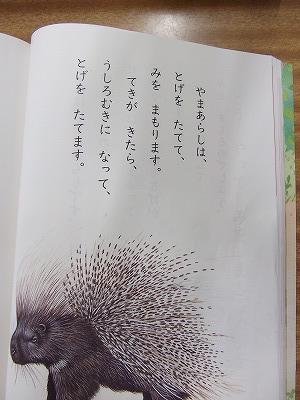 やまあらしは、
とげを たてて、
みを まもります。
てきが きたら、
うしろむきに なって、
とげを たてます。